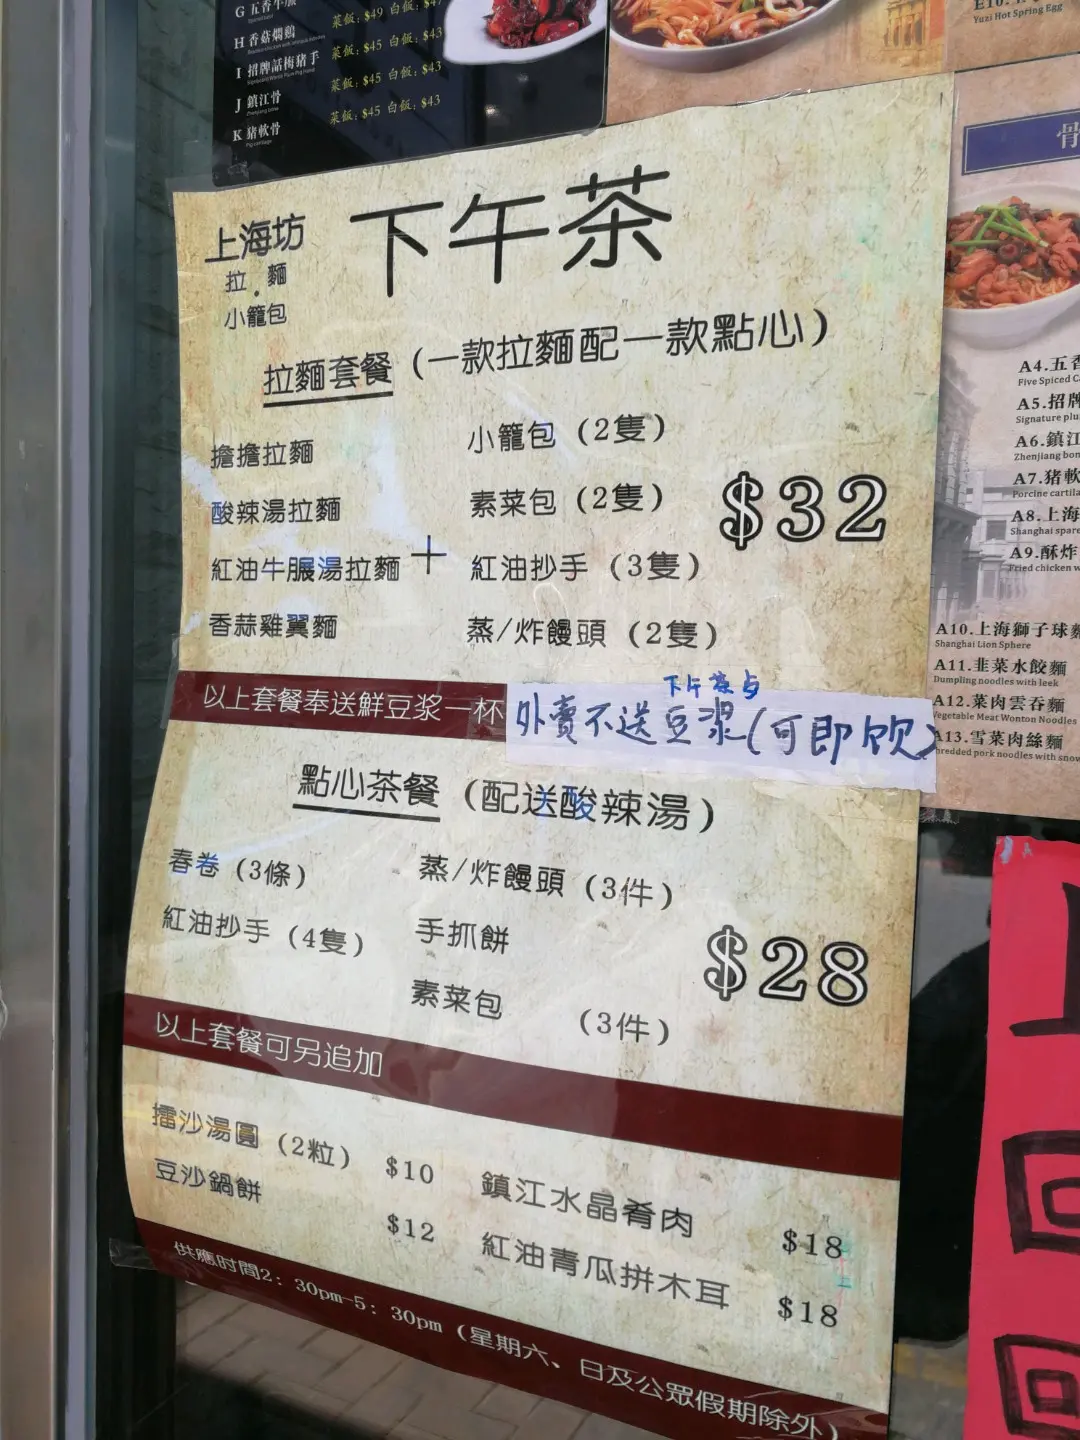 G 五香牛腩
菜飯：$49 白飯：$47
H 香菇燜鷄
菜飯：$45 白飯：$43
I 招牌話梅豬手
菜飯：$45 白飯：$43
J 鎮江骨
菜飯：$45 白飯：$43
K 豬軟骨
Pig cartilage
Yuzi Hot Spring Egg
上海坊
拉．麵
小籠包
下午茶
拉麵套餐（一款拉麵配一款點心）
擔擔拉麵
酸辣湯拉麵
紅油牛𦟌湯拉麵
香蒜雞翼麵
+
小籠包（2隻）
素菜包（2隻）
紅油抄手（3隻）
蒸/炸饅頭（2隻）
$32
以上套餐奉送鮮豆浆一杯
下午茶与
外賣不送豆漿(可即飲)
點心茶餐（配送酸辣湯）
春卷（3條）
紅油抄手（4隻）
蒸/炸饅頭（3件）
手抓餅
素菜包（3件）
$28
以上套餐可另追加
擂沙湯圓（2粒） $10
豆沙鍋餅 $12
鎮江水晶肴肉 $18
紅油青瓜拼木耳 $18
供應时間2：30pm-5：30pm（星期六、日及公眾假期除外）
骨
A4.五香
Five Spiced
A5.招牌
Signature plu
A6.鎮江
Zhenjiang bon
A7.猪軟
Porcine cartila
A8.上海
Shanghai spare
A9.酥炸
Fried chicken w
A10.上海獅子球麵
Shanghai Lion Sphere
A11.韭菜水餃麵
Dumpling noodles with leek
A12.菜肉雲吞麵
Vegetable Meat Wonton Noodles
A13.雪菜肉絲麵
hredded pork noodles with snow
回
回